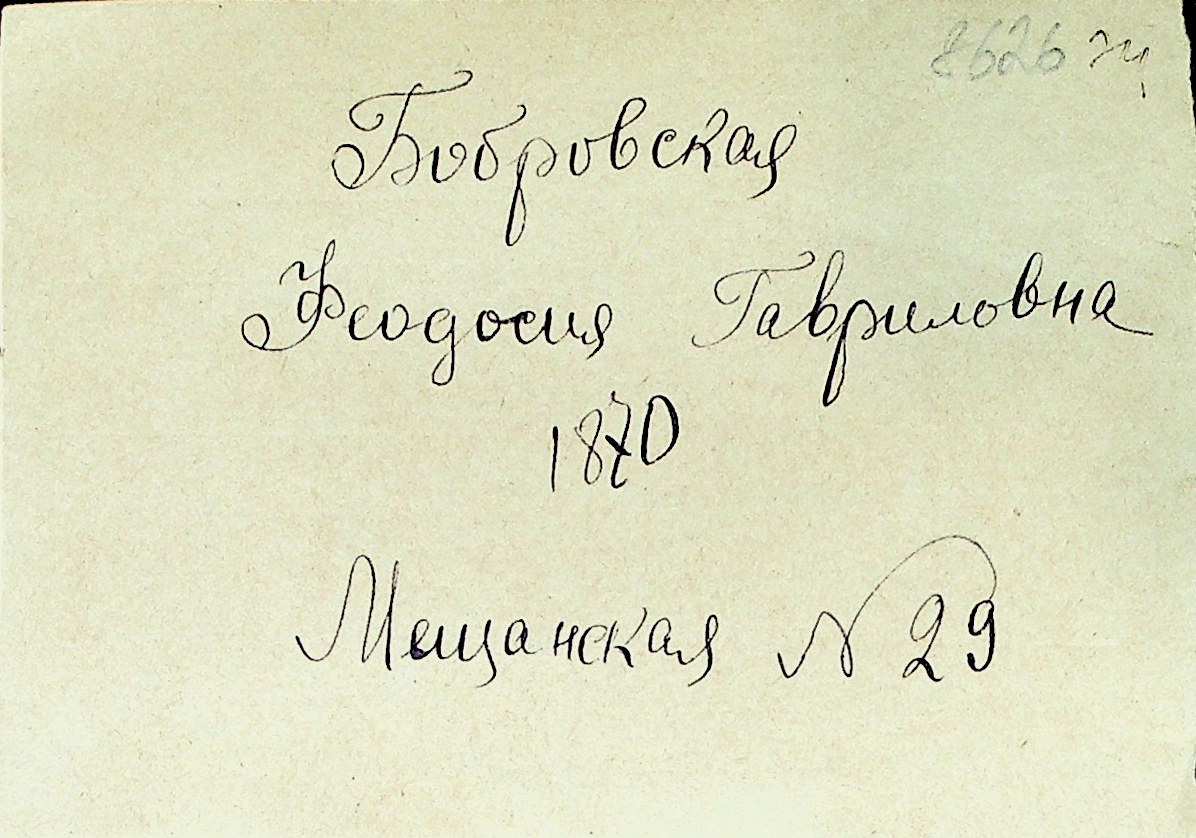 8626
Бобровская
Феодосия Гавриловна
1870
Мещанская N 29